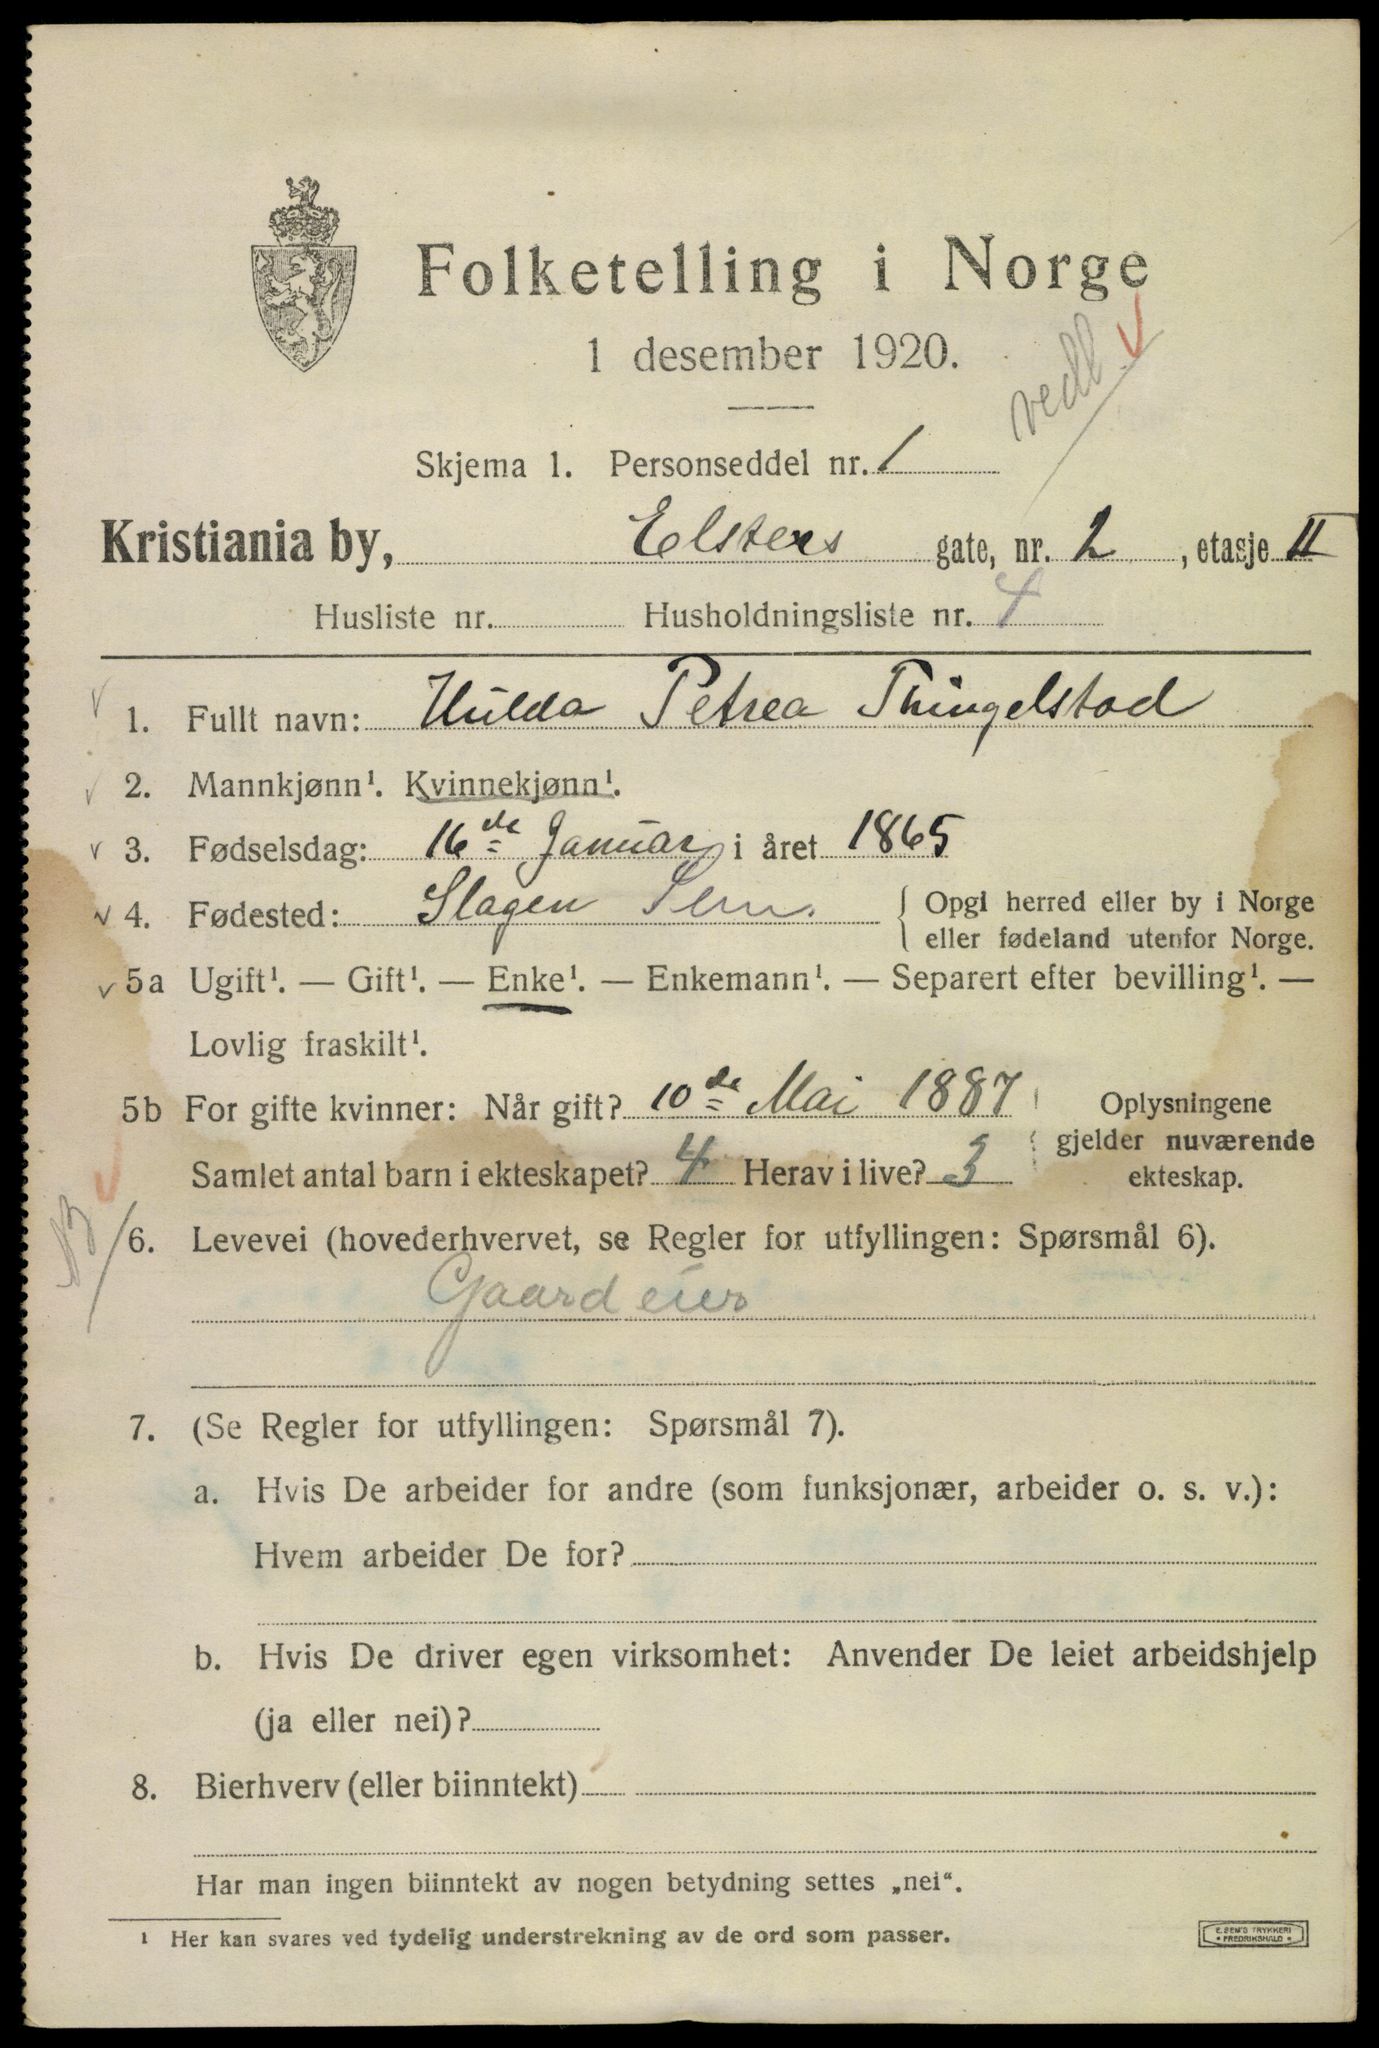 Folketelling i Norge
1 desember 1920.
vedl.
Skjema 1. Personseddel nr. 1
Kristiania by, Elsters gate, nr. 2, etasje II
Husliste nr. Husholdningsliste nr. 4
1. Fullt navn: Hulda Petrea Thingelstad
2. Mannkjønn¹. Kvinnekjønn¹.
3. Fødselsdag: 16de Januar i året 1865
4. Fødested: Slagen Sem. { Opgi herred eller by i Norge
eller fødeland utenfor Norge.
5a Ugift¹. — Gift¹. — Enke¹. — Enkemann¹. — Separert efter bevilling¹. —
Lovlig fraskilt¹.
5b For gifte kvinner: Når gift? 10de Mai 1887 Oplysningene
gjelder nuværende
Samlet antal barn i ekteskapet? 4 Herav i live? 3 ekteskap.
6. Levevei (hovederhvervet, se Regler for utfyllingen: Spørsmål 6).
Gaardeier
7. (Se Regler for utfyllingen: Spørsmål 7).
a. Hvis De arbeider for andre (som funksjonær, arbeider o. s. v.):
Hvem arbeider De for?
b. Hvis De driver egen virksomhet: Anvender De leiet arbeidshjelp
(ja eller nei)?
8. Bierhverv (eller biinntekt)
Har man ingen biinntekt av nogen betydning settes „nei“.
¹ Her kan svares ved tydelig understrekning av de ord som passer.
E. SEM'S TRYKKERI
• FREDRIKSHALD •